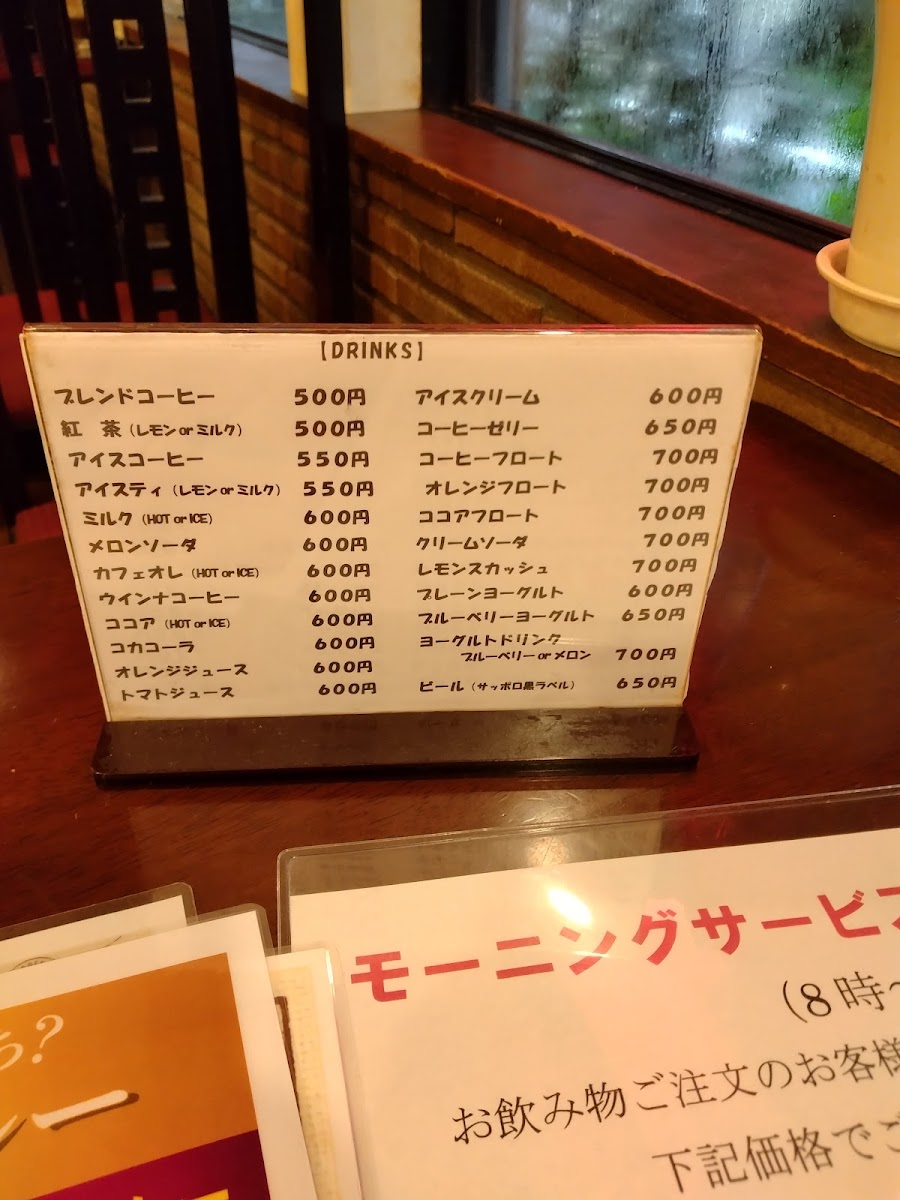 【DRINKS】
ブレンドコーヒー 500円
紅 茶(レモン or ミルク) 500円
アイスコーヒー 550円
アイスティ(レモン or ミルク) 550円
ミルク(HOT or ICE) 600円
メロンソーダ 600円
カフェオレ(HOT or ICE) 600円
ウインナコーヒー 600円
ココア(HOT or ICE) 600円
コカコーラ 600円
オレンジジュース 600円
トマトジュース 600円
アイスクリーム 600円
コーヒーゼリー 650円
コーヒーフロート 700円
オレンジフロート 700円
ココアフロート 700円
クリームソーダ 700円
レモンスカッシュ 700円
プレーンヨーグルト 600円
ブルーベリーヨーグルト 650円
ヨーグルトドリンク
ブルーベリー or メロン 700円
ビール(サッポロ黒ラベル) 650円
モーニングサービス
(8時~
お飲み物ご注文のお客様
下記価格でご
?
ー